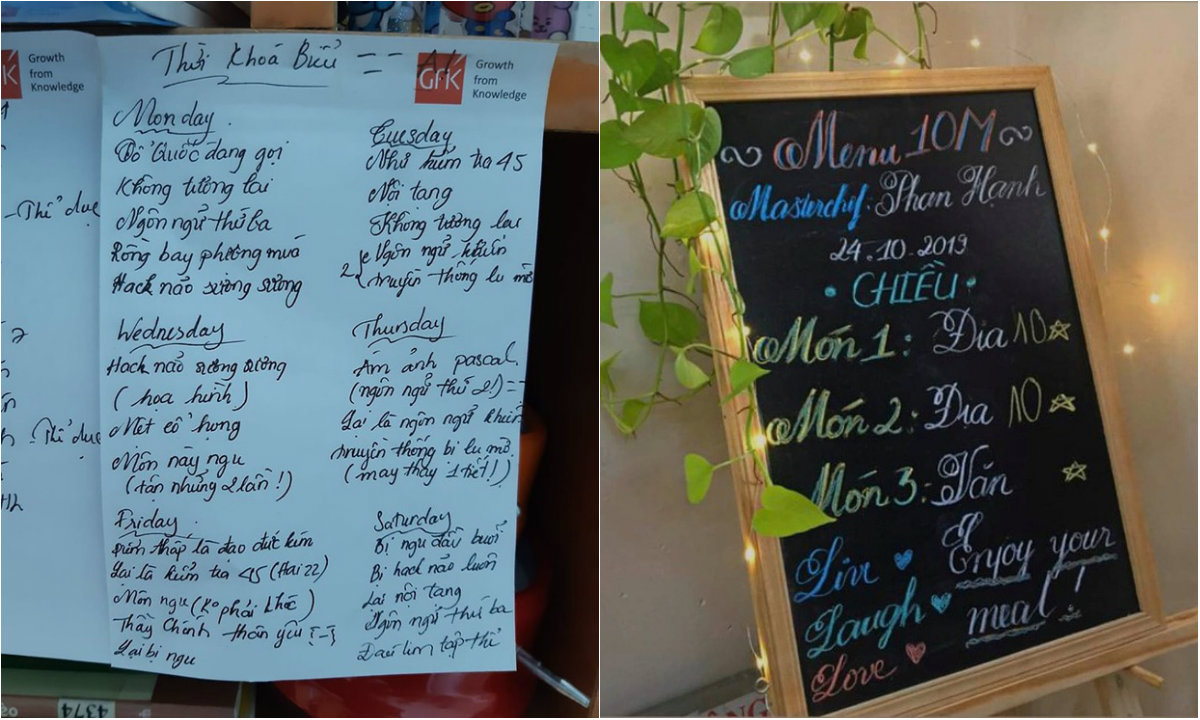 Thời Khoá Biểu
GfK
Growth
from
Knowledge
Growth
from
Knowledge
- Thể dục
- Thể dục
Monday
Tổ Quốc đang gọi
Không tương lai
Ngôn ngữ thứ ba
Rồng bay phượng múa
Hack não sương sương
Tuesday
Như kiểm tra 45
Nội tang
Không tương lai
2 { Ngôn ngữ khuẩn
truyền thống lu mờ
Wednesday
Hack não sương sương
(họa hình)
Mệt cổ họng
Môn này ngu
(tận những 2 lần!)
Thursday
Ám ảnh pascal
(ngôn ngữ thứ 2!) ==
Lại là ngôn ngữ khuẩn
truyền thống bị lu mờ
(may thay 1 tiết!)
Friday
là đạo đức kém
Lại là kiểm tra 45 (Hai 22)
Môn ngu (Ko phải khóc)
Thầy Chánh thân yêu
Lại bị ngu
Saturday
Bị ngu đầu buổi
Bị hack não luôn
Lại nội tang
Ngôn ngữ thứ ba
Đau tim tập thể
4374
Menu 10M
Masterchef: Phan Hanh
24.10.2019
CHIỀU
Món 1: Địa 10
Món 2: Địa 10
Món 3: Văn
Live
Laugh
Love
& Enjoy your
meal!